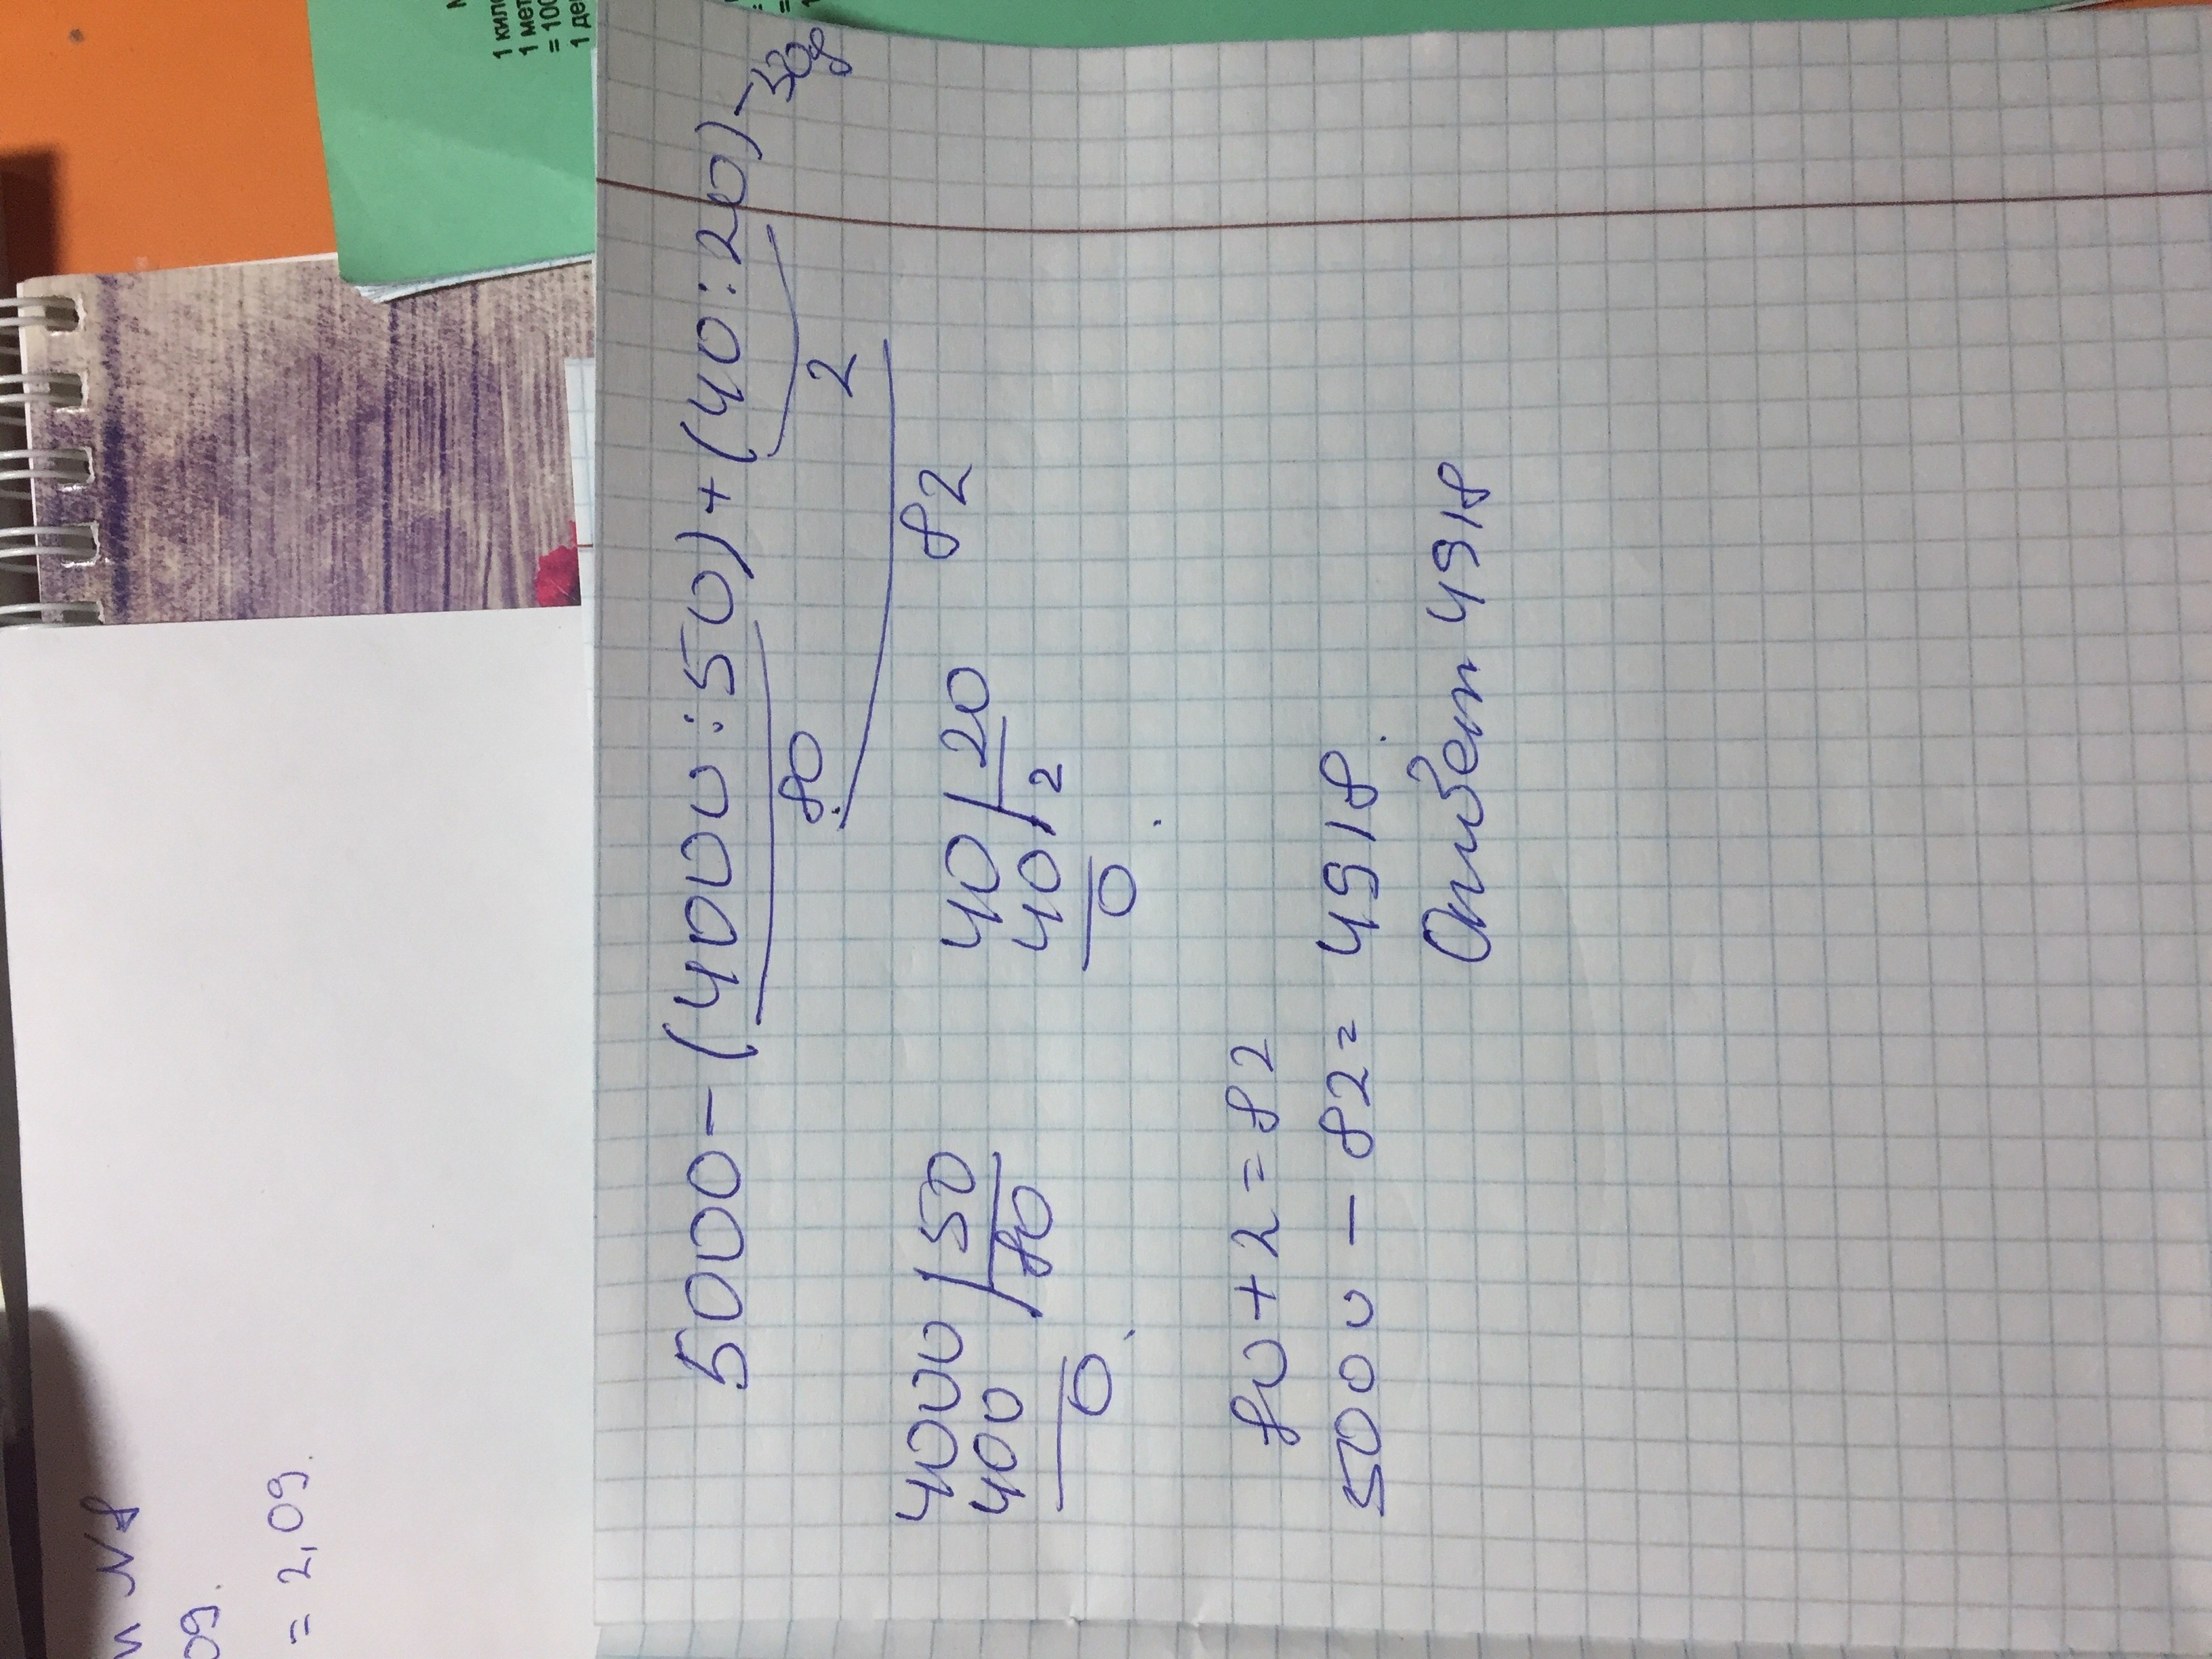 5000-(4000:50)+(40:20)-
80
2
82
4000 50
400 80
0
40 20
40 2
0
80+2=82
5000-82=4918.
Ответ 4918
и №8
09.
=2,09.
1 мет
= 100